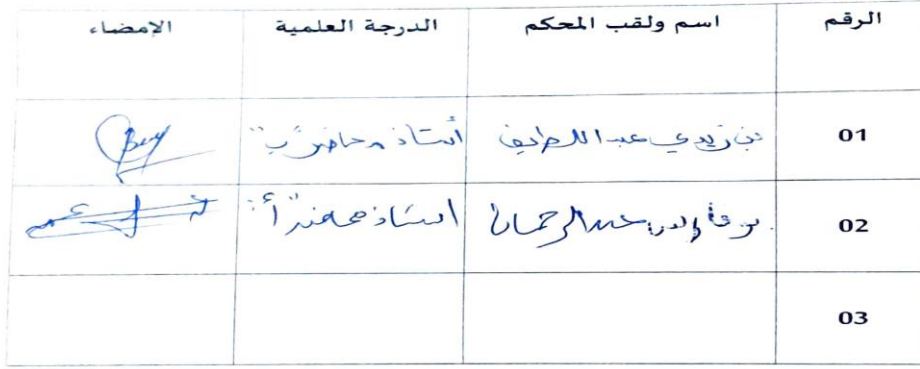 الرقم اسم ولقب المحكم الدرجة العلمية الإمضاء
01 بن زيدي عبد اللطيف أستاذ محاضر "ب"
02 عبد الرحمان أستاذ محاضر "أ"
03